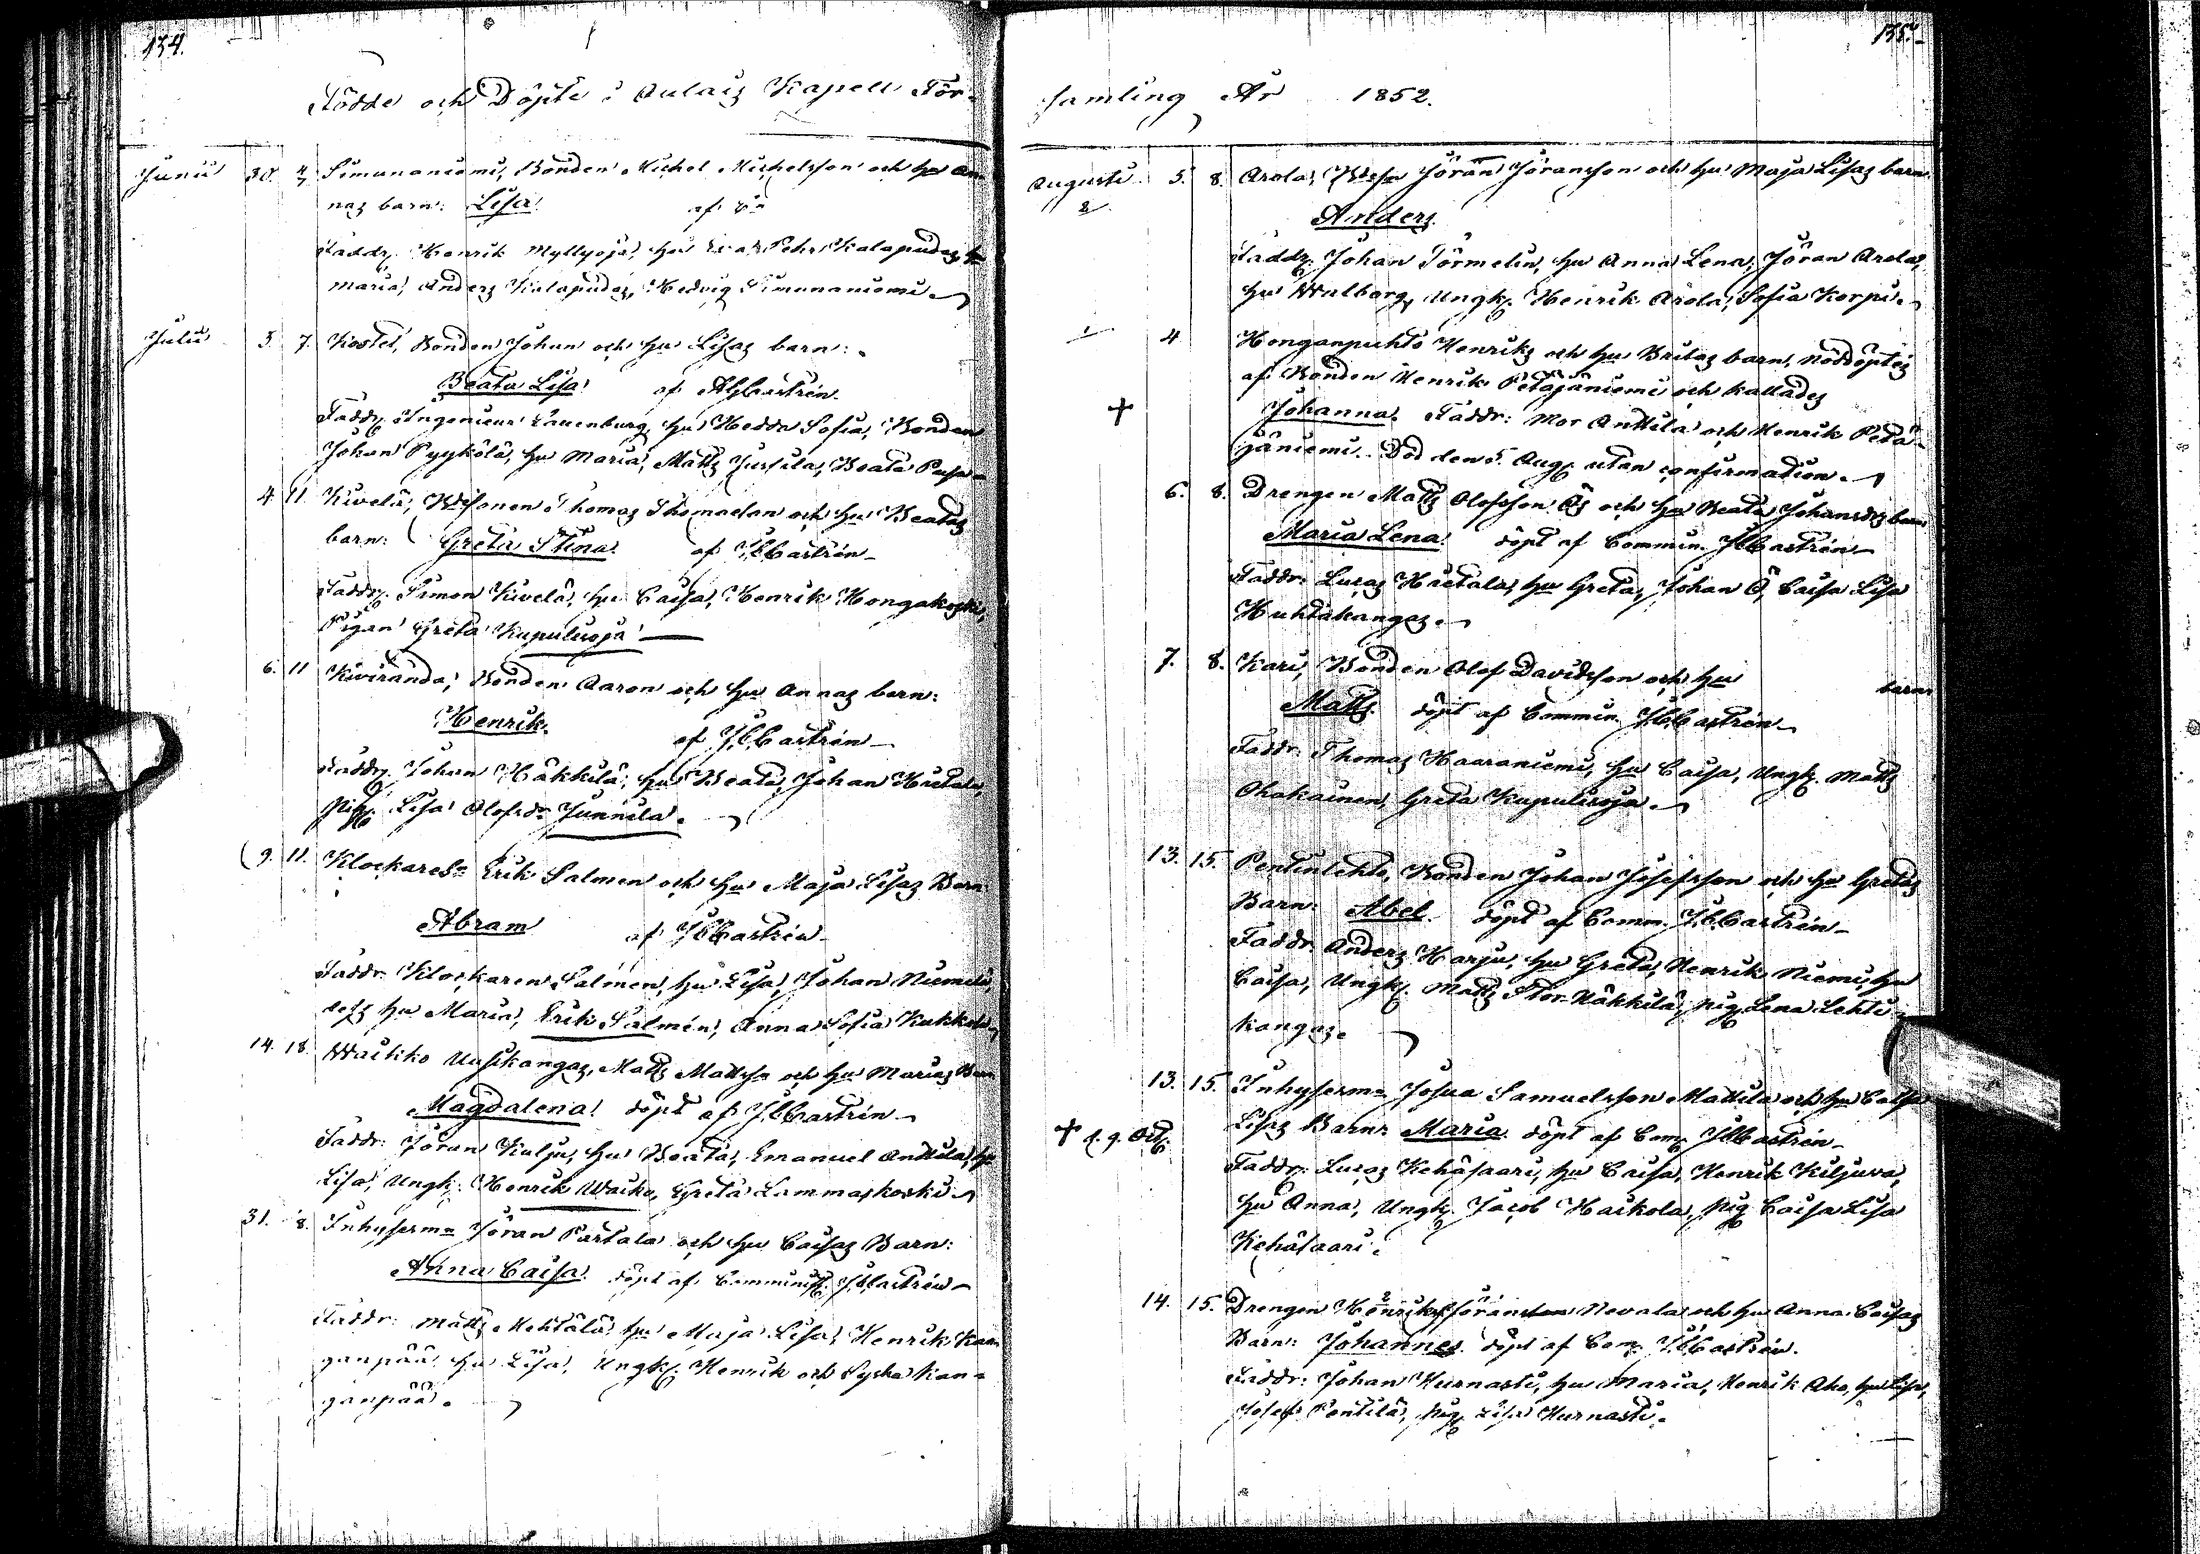 134.
Födde och Döpte i Pulais Kapell För-
Junii 30. 4/7 Simunaniemi, Bonden Michel Michelsson och hu An
nas barn: Lisa af
Faddr. Henrik Myllyoja, hu Eva, Pehr Kalapudas, hu
Maria, Anders Kalapudas, Hedvig Simunaniemi
Julii 3. 7. Koste, Bonden Johan och hu Lisas barn:
Beata Lisa af Castrén
Faddr. Ingenieur Lauenburg, hu Hedda Sofia, Bonden
Johan Pyykölä, hu Maria, Matts Jussila, Beata
4 11 Kivelä, Thomas Thomaeson och hu Beatas
barn: Greta Stina af Castrén
Faddr. Simon Kivelä, hu Caisa, Henrik Hongakoski,
Pigan Greta Kupulisoja
6. 11 Kiviranda, Bonden Aaron och hu Annas barn:
Henrik. af Castrén
Faddr. Johan Häkkilä, hu Beata, Johan Hietala,
Pig. Lisa Olofsdr Junnila.
9. 11. Klockareso Erik Salmen och hu Maja Lisas Barn
Abram af Castrén
Faddr. Klockaren Salmén, hu Lisa, Johan Niemelä,
dess hu Maria, Erik Salmén, Anna Sofia Kukkola
14. 18. Waikko Uusikangas, Matts Mattss och hu Marias Barn
Magdalena döpt af Castrén
Faddr: Jöran Kulju, hu Beata, Emanuel Anttila, hu
Lisa, Ungk. Henrik Waiko, Greta Lammaskoski
31. 8. Inhyserma Jöran Partala och hu Caisas Barn:
Anna Caisa döpt af Castrén
Faddr: Matts Mehtälä, hu Maja Lisa, Henrik Kan
ganpää hu Lisa, Ungk. Henrik och Kan-
ganpää.
135.
samling År 1852.
Augusti 5. 8. Arola, Jöran Jöransson och hu Maja Lisas barn
2
Anders
Faddr. Johan Törmelin, hu Anna Lena, Jöran Arola,
hu Walborg, Ungk. Henrik Arola, Sofia Korpi
1 4 Honganpuhto Henriks och hu Britas barn, nöddöptes
af Bonden Henrik Petäjäniemi och kallades
Johanna. Faddr: Mor Anttila och Henrik Petä-
jäniemi. Död den 5. Aug. utan confirmation.
6. 8. Drengen Matts Olofsson och hu Beata Johansdrs barn
Maria Lena. döpt af Commin. Castrén
Faddr. Lucas Hietala, hu Greta, Johan Caisa Lisa
Huhtakangas.
7. 8. Kari, Bonden Olof Davidsson och hu barn
Matts döpt af Commin. Castrén
Faddr. Thomas Haaraniemi, hu Caisa, Ungk. Matts
Ohokainen, Greta Kupulisoja.
13. 15. Pentinlehto, Bonden Johan Josefsson och hu Gretas
Barn: Abel döpt af Comm. Castrén
Faddr. Anders Harju, hu Greta, Henrik Niemi, hu
Caisa, Ungk. Matts Stor-Häkkilä, pig. Lena Lehti-
kangas.
13. 15. Inhyserma Josua Samuelsson Mattila och hu Caisa
Lisas Barn Maria döpt af Com. Castrén
† d. 9. Oct.
Faddr. Lucas Kehäsaari, hu Caisa, Henrik Kiljuva,
hu Anna, Ungk. Jacob Haikola, pig Caisa Lisa
Kehäsaari.
14. 15. Drengen Henrik Nevala och hu Anna Caisas
Barn: Johannes döpt af Com. Castrén.
Faddr: Johan Kurnasti, hu Maria, Henrik Aho, hu Lisa,
Josef Pentilä, pig. Lisa Kurnasti.